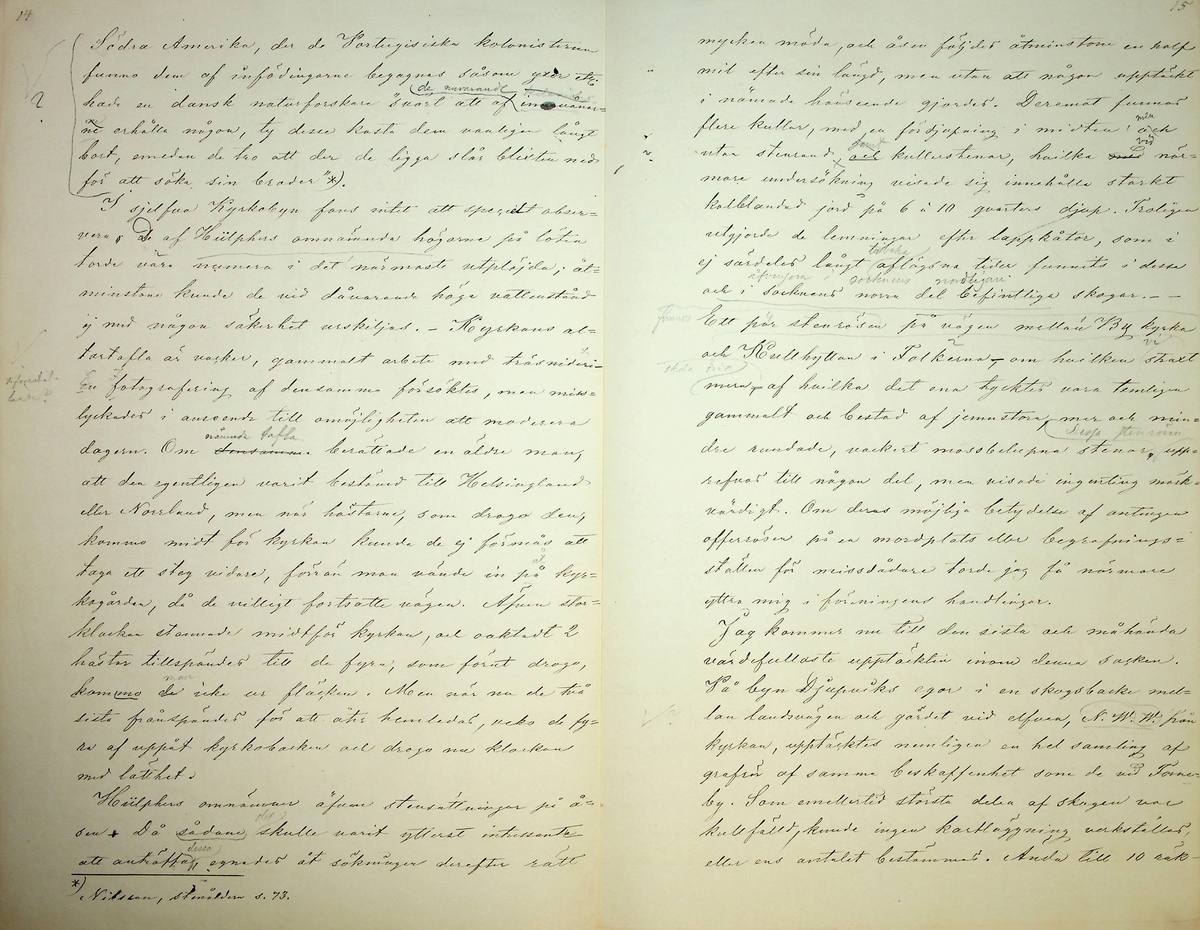 14
Södra Amerika, der de Portugisiska kolonisterna
funno dem af infödingarne begagnas såsom yxor etc.
hade en dansk naturforskare "svårt att af de nuvarande invånar-
ne erhålla någon, ty desse kasta dem vanligen långt
bort, emedan de tro att der de ligga slår blixten ned
för att söka sin broder" *).
I sjelfva Kyrkobyn fans intet att speciелt obser-
vera. De af Hülphers omnämnda högarne på löten
torde vara numera i det närmaste utplöjda; åt-
minstone kunde de vid dåvarande höga vattenstånd
ej med någon säkerhet urskiljas. – Kyrkans al-
tartafla är vacker, gammalt arbete med träsnideri.
En fotografering af densamma försöktes, men miss-
lyckades i anseende till omöjligheten att moderera
dagern. Om densamma nämnda tafla berättade en äldre man,
att den egentligen varit bestämd till Helsingland
eller Norrland, men när hästarne, som drogo den,
kommo midt för kyrkan kunde de ej förmås att
taga ett steg vidare, förrän man vände in på kyr-
kogården, då de villigt fortsatte vägen. Äfven stor-
klockan stannade midtför kyrkan, och oaktadt 2
hästar tillspändes till de fyra, som förut drogo,
kommo de man icke ur fläcken. Men när nu de två
sista frånspändes för att åter hemledas, veko de fy-
ra af uppåt kyrkobacken och drogo nu klockan
med lätthet.
Hülphers omnämner äfven stensättningar på å-
sen. Då sådane skulle varit ytterst intressanta
att anträffa, egnades åt sökningen derefter rätt
*) Nilsson, stenåldern s. 73.
15
mycken möda, och åsen följdes åtminstone en half
mil efter sin längd, men utan att någon upptäckt
i nämnda hänseende gjordes. Deremot funnos
flere kullar, med en fördjupning i midten och
utan stenrand och samt kullerstenar, hvilka med vid när-
mare undersökning visade sig innehålla starkt
kolblandad jord på 6 à 10 quarters djup. Troligen
utgjorde de lemningar efter lappkåtor, som i
ej särdeles långt tillbaka aflägsna tider funnits i dessa
och i socknens norra del befintliga skogar. – –
Ett par stenrösen på vägen mellan By kyrka
och Kullhyttan i Folkerna – om hvilken straxt
mera – af hvilka det ena tycktes vara temligen
gammalt och bestod af jemnstora, mer och min-
dre rundade, vackert mossbelupna stenar, upp-
refvos till någon del, men visade ingenting märk-
värdigt. Om deras möjliga betydelse af antingen
offerrösen på en mordplats eller begrafnings-
ställen för missdådare torde jag få närmare
yttra mig i föreningens handlingar.
Jag kommer nu till den sista och måhända
värdefullaste upptäckten inom denna socken.
På byn Djupviks egor i en skogsbacke mel-
lan landsvägen och gärdet vid elfven, N.W.W. från
kyrkan, upptäcktes nemligen en hel samling af
grafrör af samma beskaffenhet som de vid Forne-
by. Som emellertid största delen af skogen var
kullfälld, kunde ingen kartläggning verkställas,
eller ens antalet bestämmas. Ända till 10 räk-